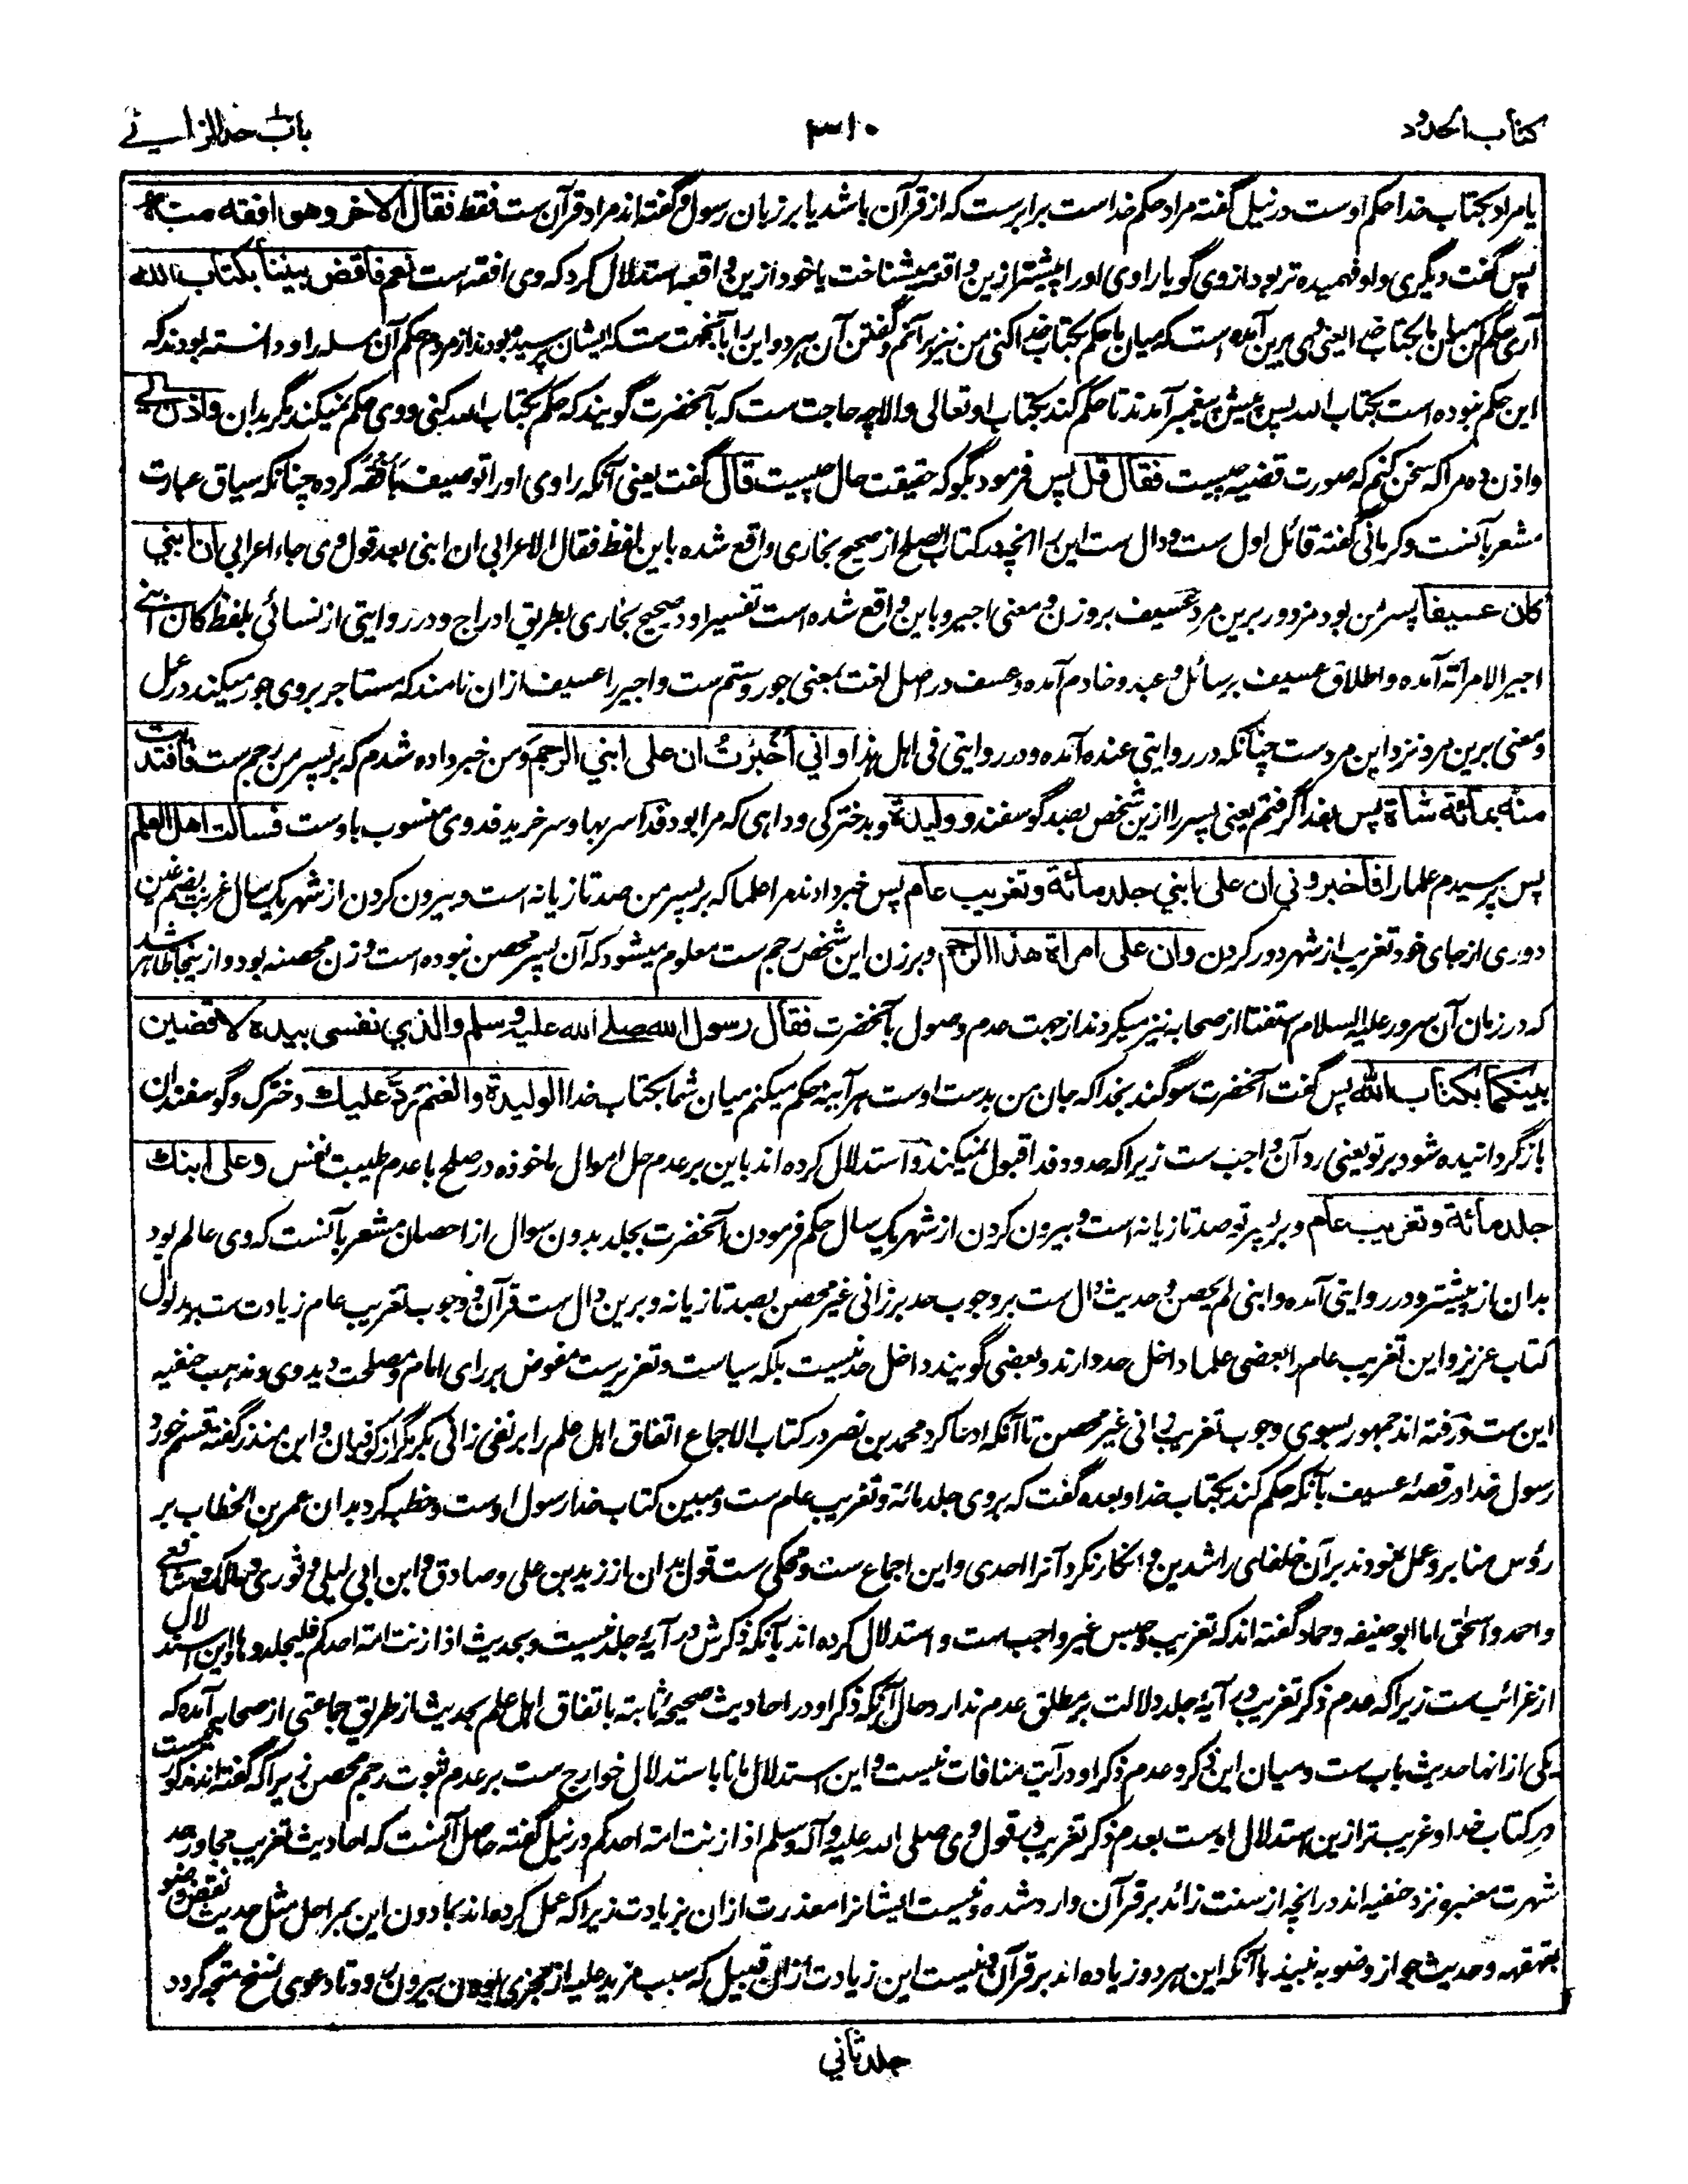 کتاب الحدود
۳۱۰
باب حد الزانی
یا مراد بکتاب خدا حکم اوست در نیل گفته مراد حکم خداست برابرست که از قرآن باشد یا بر زبان رسول و گفته اند مراد قرآن ست فقط فقال الاخر وهو افقه منه
پس گفت دیگری و او فهمیده تر بود از وی گویا راوی او را پیشتر ازین واقعه میشناخت یا خود ازین واقعه استدلال کرد که وی افقه است نعم فاقض بیننا بکتاب الله
آری حکم کن میان ما بکتاب خدا یعنی وی برین آمده است که میان ما حکم بکتاب خدا کنی من نیز برآنم و گفتن آن هر دو این را بآنجهت ست که ایشان پرسیده بودند از مردم حکم آن مسئله را و دانسته بودند که
این حکم نبوده است بکتاب الله پس پیش پیغمبر آمدند تا حکم کند بکتاب او تعالی والا چه حاجت ست که بآنحضرت گویند که حکم بکتاب الله کنی و وی حکم نمیکند مگر بدان واذن لی
واذن ده مرا که سخن کنم که صورت قضیه چیست فقال قل پس فرمود بگو که حقیقت حال چیست قال گفت یعنی آنکه راوی او را توصیف بافقه کرده چنانکه سیاق عبارت
مشعر بآنست و کرمانی گفته قائل اول ست و دال ست این را انچه در کتاب الصلح از صحیح بخاری واقع شده باین لفظ فقال الاعرابی ان ابنی بعد قول وی جاء اعرابی ان ابني
کان عسیفا پسر من بود مزدور برین مرد عسیف بر وزن و معنی اجیر و باین واقع شده است تفسیر او در صحیح بخاری بطریق ادراج و در روایتی از نسائی بلفظ کان ابنی
اجیر الامرأته آمده و اطلاق عسیف بر سائل و عبد و خادم آمده و عسف در اصل لغت بمعنی جور و ستم ست و اجیر را عسیف ازان نامند که مستاجر بر وی جور میکند در عمل
و معنی برین مرد نزد این مردست چنانکه در روایتی عنده آمده و در روایتی فی اهل هذا واني اُخبِرْتُ ان علی ابني الرجم و من خبر داده شدم که بر پسر من رجم ست فافتدیت
منه بمائة شاة پس بفدا گرفتم یعنی پسر را ازین شخص بصد گوسفند وولیدة و بدخترکی و داهی که مرا بود فدا سربها و سرخرید فدوی منسوب باوست فسألت اهل العلم
پس پرسیدم علما را فاخبروني ان علی ابني جلد مائة وتغریب عام پس خبر دادند مرا علما که بر پسر من صد تازیانه است و بیرون کردن از شهر یک سال غربت بضم غین
دوری از جای خود تغریب از شهر دور کردن وان علی امراة هذا الرجم و بر زن این شخص رجم ست معلوم میشود که آن پسر محصن نبوده است و زن محصنه بود و ازینجا ظاهر شد
که در زمان آن سرور علیه السلام استفتا از صحابه نیز میکردند از جهت عدم وصول بآنحضرت فقال رسول الله صلے الله علیه وسلم والذي نفسی بیده لاقضین
بینکما بکتاب الله پس گفت آنحضرت سوگند بخدا که جان من بدست اوست هر آینه حکم میکنم میان شما بکتاب خدا الولیدة والغنم ردّ علیك دخترک و گوسفندان
باز گردانیده شود بر تو یعنی رد آن واجب ست زیرا که حدود فدا قبول نمیکند و استدلال کرده اند باین بر عدم حل اموال ماخوذه در صلح با عدم طیبت نفس وعلی ابنك
جلد مائة وتغریب عام و بر پسر تو صد تازیانه است و بیرون کردن از شهر یک سال حکم فرمودن آنحضرت بجلد بدون سوال از احصان مشعر بآنست که وی عالم بود
بدان از پیشتر و در روایتی آمده وابنی لم یحصن و حدیث دال ست بر وجوب حد بر زانی غیر محصن بصد تازیانه و برین دال ست قرآن و وجوب تغریب عام زیادت ست بر مدلول
کتاب عزیز و این تغریب عام را بعضی علما داخل حد دارند و بعضی گویند داخل حد نیست بلکه سیاست و تعزیرست مفوض بر رای امام و مصلحت دید وی و مذهب حنفیه
این ست و رفته اند جمهور بسوی وجوب تغریب زانی غیر محصن تا آنکه ادعا کرد محمد بن نصر در کتاب الاجماع اتفاق اهل علم را بر نفی زانی بکر مگر از کوفیان و ابن منذر گفته قسم خورد
رسول خدا در قصهٔ عسیف بآنکه حکم کند بکتاب خدا و بعده گفت که بر وی جلد مائة و تغریب عام ست و مبین کتاب خدا رسول اوست و خطبه کرد بدان عمر بن الخطاب بر
رؤس منابر و عمل نمودند بر آن خلفای راشدین و انکار نکرد آنرا احدی و این اجماع ست و محکی ست قول بدان از زید بن علی و صادق و ابن ابی لیلی و ثوری و مالک و شافعی
و احمد و اسحٰق اما ابو حنیفه و حماد گفته اند که تغریب و حبس غیر واجب ست و استدلال کرده اند بآنکه ذکرش در آیهٔ جلد نیست و بحدیث اذا زنت امة احدکم فلیجلدوها و این استدلال
از غرائب ست زیرا که عدم ذکر تغریب در آیهٔ جلد دلالت بر مطلق عدم ندارد و حال آنکه ذکر او در احادیث صحیحهٔ ثابته باتفاق اهل علم بحدیث از طریق جماعتی از صحابه آمده که
یکی از انها حدیث باب ست و میان این ذکر و عدم ذکر او در آیت منافات نیست و این استدلال مانا باستدلال خوارج ست بر عدم ثبوت رجم محصن زیرا که گفته اند مذکور نیست
در کتاب خدا و غریب تر ازین استدلال اوست بعدم ذکر تغریب در قول وی صلی الله علیه وآله وسلم اذا زنت امة احدکم در نیل گفته حاصل آنست که احادیث تغریب مجاور حد
شهرت معتبره نزد حنفیه اند در انچه از سنت زائد بر قرآن وارد شده و نیست ایشانرا معذرت ازان زیادت زیرا که عمل کرده اند بما دون این بمراحل مثل حدیث نقض وضو
بقهقهه و حدیث جواز وضو به نبیذ با آنکه این هر دو زیاده اند بر قرآن و نیست این زیادت ازان قبیل که سبب مزید علیه از مجزی بودن بیرون رود تا دعوی نسخ متجه گردد
جلد ثاني